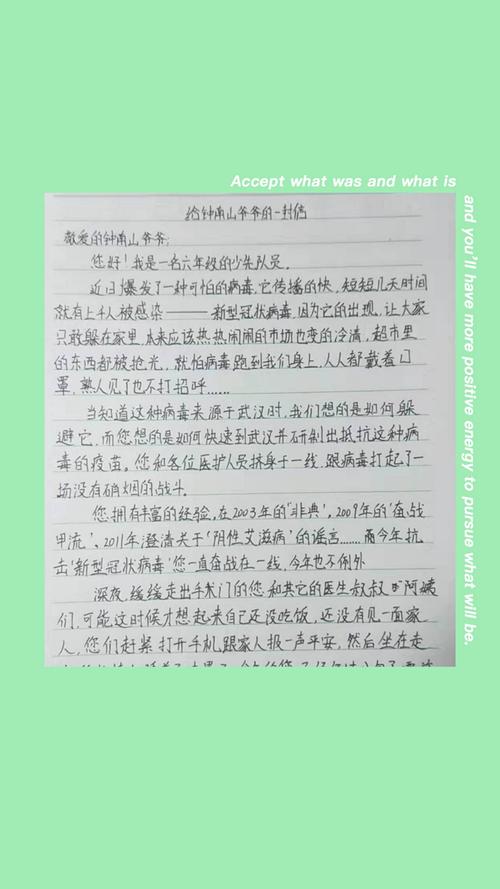 Accept what was and what is
and you'll have more positive energy to pursue what will be.
给钟南山爷爷的一封信
敬爱的钟南山爷爷:
您好!我是一名六年级的少先队员。
近日爆发了一种可怕的病毒,它传播的快,短短几天时间
就有上千人被感染———新型冠状病毒,因为它的出现,让大家
只敢躲在家里,本来应该热热闹闹的市场也变的冷清,超市里
的东西都被抢光,就怕病毒跑到我们身上,人人都戴着口
罩,熟人见了也不打招呼……
当知道这种病毒来源于武汉时,我们想的是如何躲
避它,而您想的是如何快速到武汉并研制出抵抗这种病
毒的疫苗。您和各位医护人员挤身于一线,跟病毒打起了一
场没有硝烟的战斗。
您拥有丰富的经验,在2003年的"非典",2009年的'奋战
甲流'、2011年澄清关于'阴性艾滋病'的谣言……而今年抗
击'新型冠状病毒'您一直奋战在一线,今年也不例外
深夜,缓缓走出手术门的您和其它的医生叔叔和阿姨
们,可能这时候才想起来自己还没吃饭,还没有见一面家
人,您们赶紧打开手机跟家人报一声平安,然后坐在走